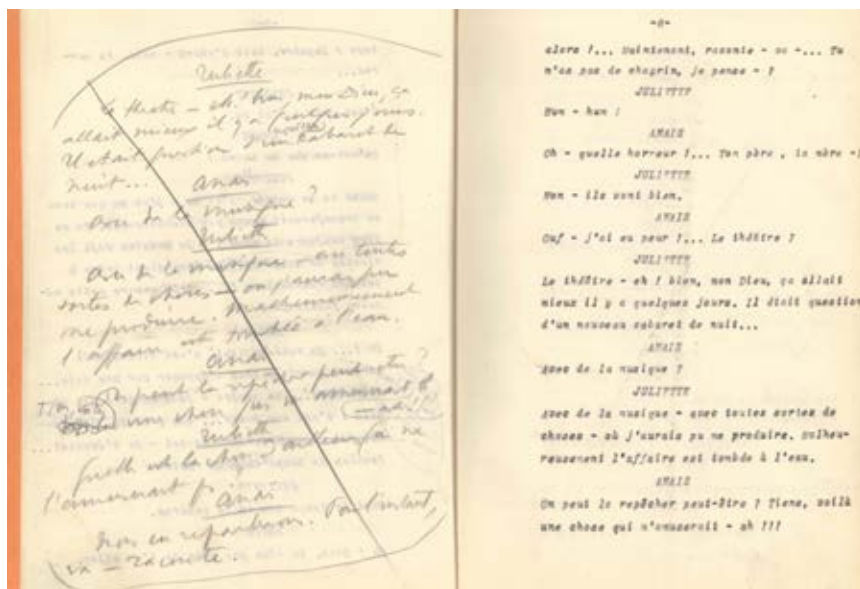 Juliette
Le théâtre - eh! bien mon Dieu, ça
allait mieux il y a quelques jours.
Il était question d'un nouveau cabaret de
nuit...
Anais
Avec de la musique?
Juliette
Avec de la musique - avec toutes
sortes de choses - où j'aurais pu
me produire. Malheureusement
l'affaire est tombée à l'eau.
Anais
On peut la repêcher peut-être?
Tiens, voilà une chose qui m'amuserait
- ah!!!
Juliette
Quelle
l'amuserait
Anais
Nous en reparlerons. Pour l'instant,
va - raconte.
-8-
alors !... Maintenant, raconte - va -... Tu
n'as pas de chagrin, je pense - ?
JULIETTE
Hun - hun !
ANAIS
Oh - quelle horreur !... Ton père, ta mère -?
JULIETTE
Non - ils vont bien.
ANAIS
Ouf - j'ai eu peur !... Le théâtre ?
JULIETTE
Le théâtre - eh ! bien, mon Dieu, ça allait
mieux il y a quelques jours. Il était question
d'un nouveau cabaret de nuit...
ANAIS
Avec de la musique ?
JULIETTE
Avec de la musique - avec toutes sortes de
choses - où j'aurais pu me produire. Malheu-
reusement l'affaire est tombée à l'eau.
ANAIS
On peut la repêcher peut-être ? Tiens, voilà
une chose qui m'amuserait - ah !!!